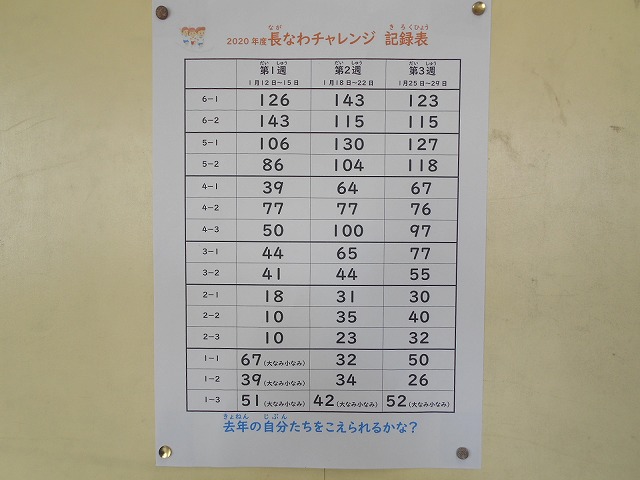 2020年度長なわチャレンジ 記録表
なが きろくひょう
第1週 第2週 第3週
だい しゅう だい しゅう だい しゅう
1月12日~15日 1月18日~22日 1月25日~29日
6-1 126 143 123
6-2 143 115 115
5-1 106 130 127
5-2 86 104 118
4-1 39 64 67
4-2 77 77 76
4-3 50 100 97
3-1 44 65 77
3-2 41 44 55
2-1 18 31 30
2-2 10 35 40
2-3 10 23 32
1-1 67(大なみ小なみ) 32 50
1-2 39(大なみ小なみ) 34 26
1-3 51(大なみ小なみ) 42(大なみ小なみ) 52(大なみ小なみ)
きょねん じぶん
去年の自分たちをこえられるかな?